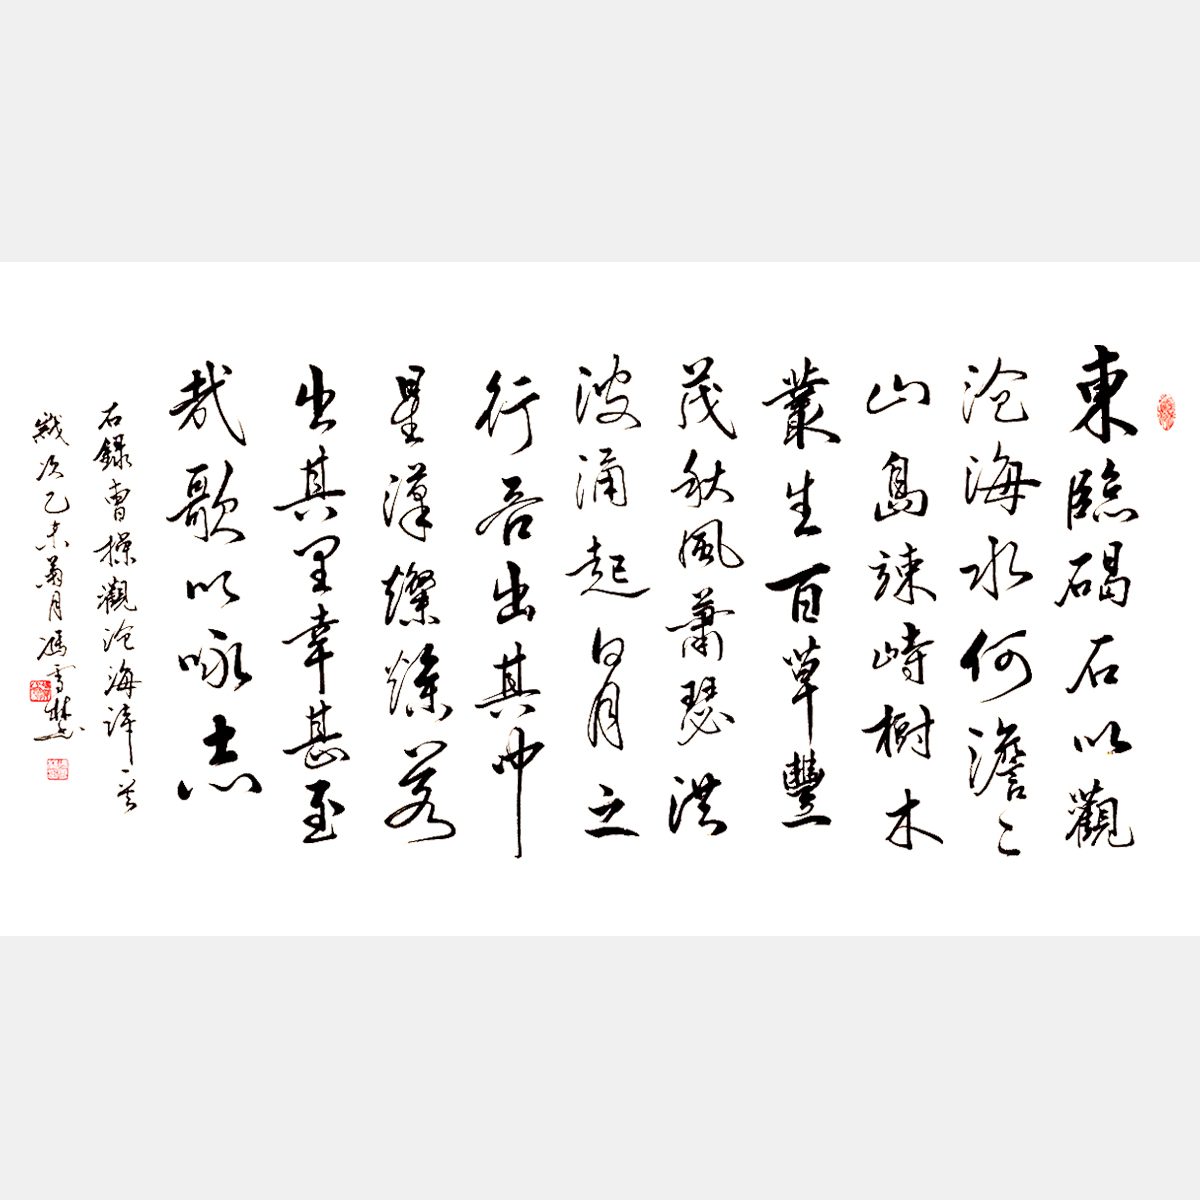 東臨碣石以觀
沧海水何澹〻
山島竦峙樹木
叢生百草豐
茂秋風蕭瑟洪
波涌起日月之
行若出其中
星漢燦爛若
出其里幸甚至
哉歌以咏志
右録曹操觀沧海詩一首
歲次乙未菊月馮雪